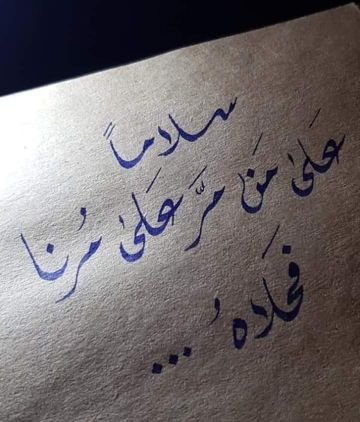 سلاماً
عَلىٰ مَن مرَّ عَلىٰ مُرنا
فحَلَاهُ ...